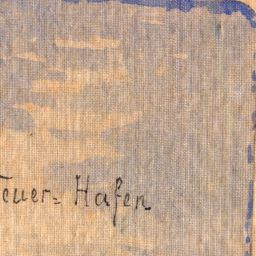 euer= Hafen